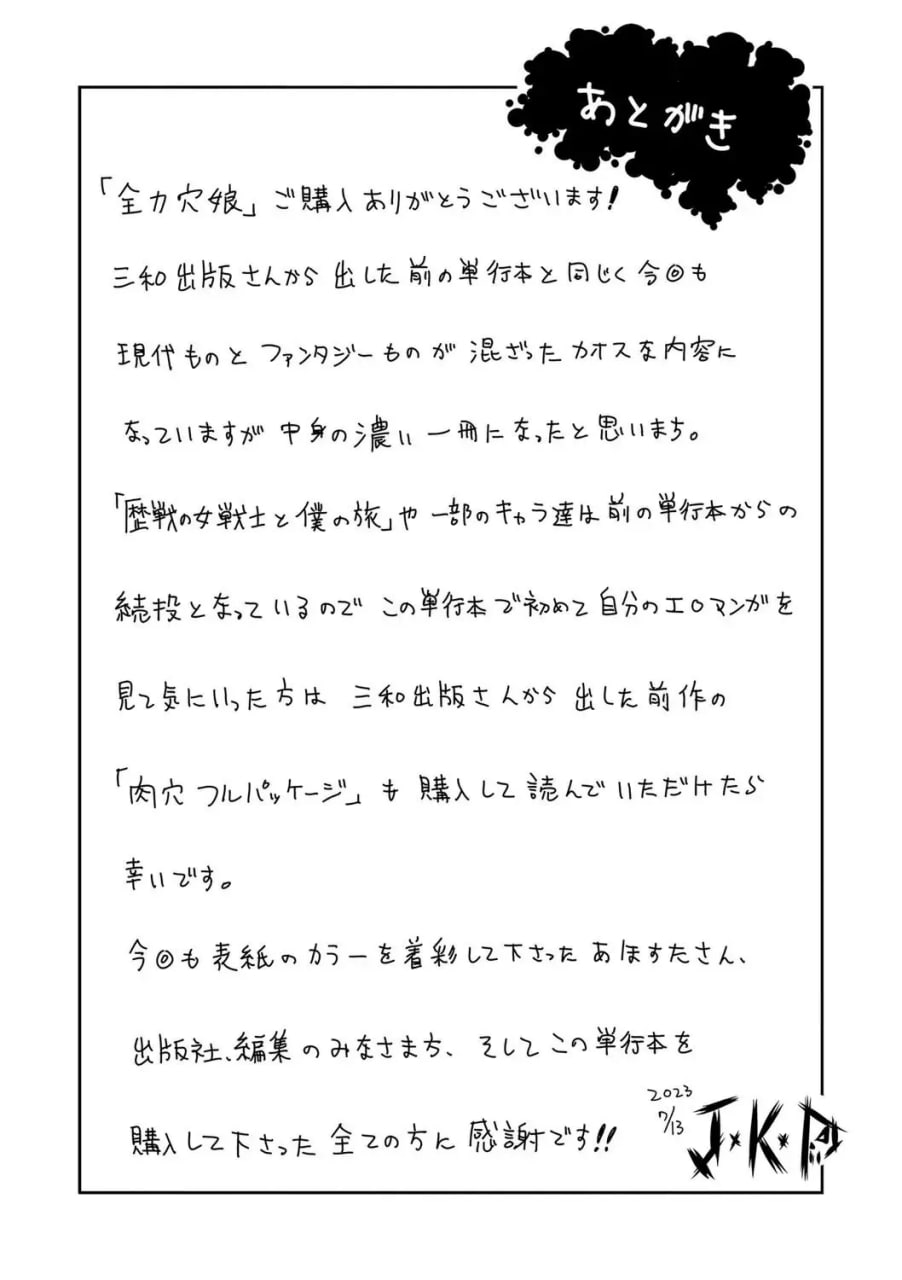 あとがき
「全力穴娘」ご購入ありがとうございます!
三和出版さんから 出した前の単行本と同じく今回も
現代ものと ファンタジーものが 混ざったカオスな内容に
なっていますが 中身の濃い一冊になったと思いまち。
「歴戦の女戦士と僕の旅」や一部のキャラ達は前の単行本からの
続投となっているので この単行本で初めて自分のエロマンガを
見て気にいった方は 三和出版さんから 出した前作の
「肉穴フルパッケージ」も 購入して読んでいただけたら
幸いです。
今回も表紙のカラーを着彩して下さった あほすたさん、
出版社、編集のみなさまち、そしてこの単行本を
購入して下さった 全ての方に 感謝です!!
2023
7/13
J×K×P